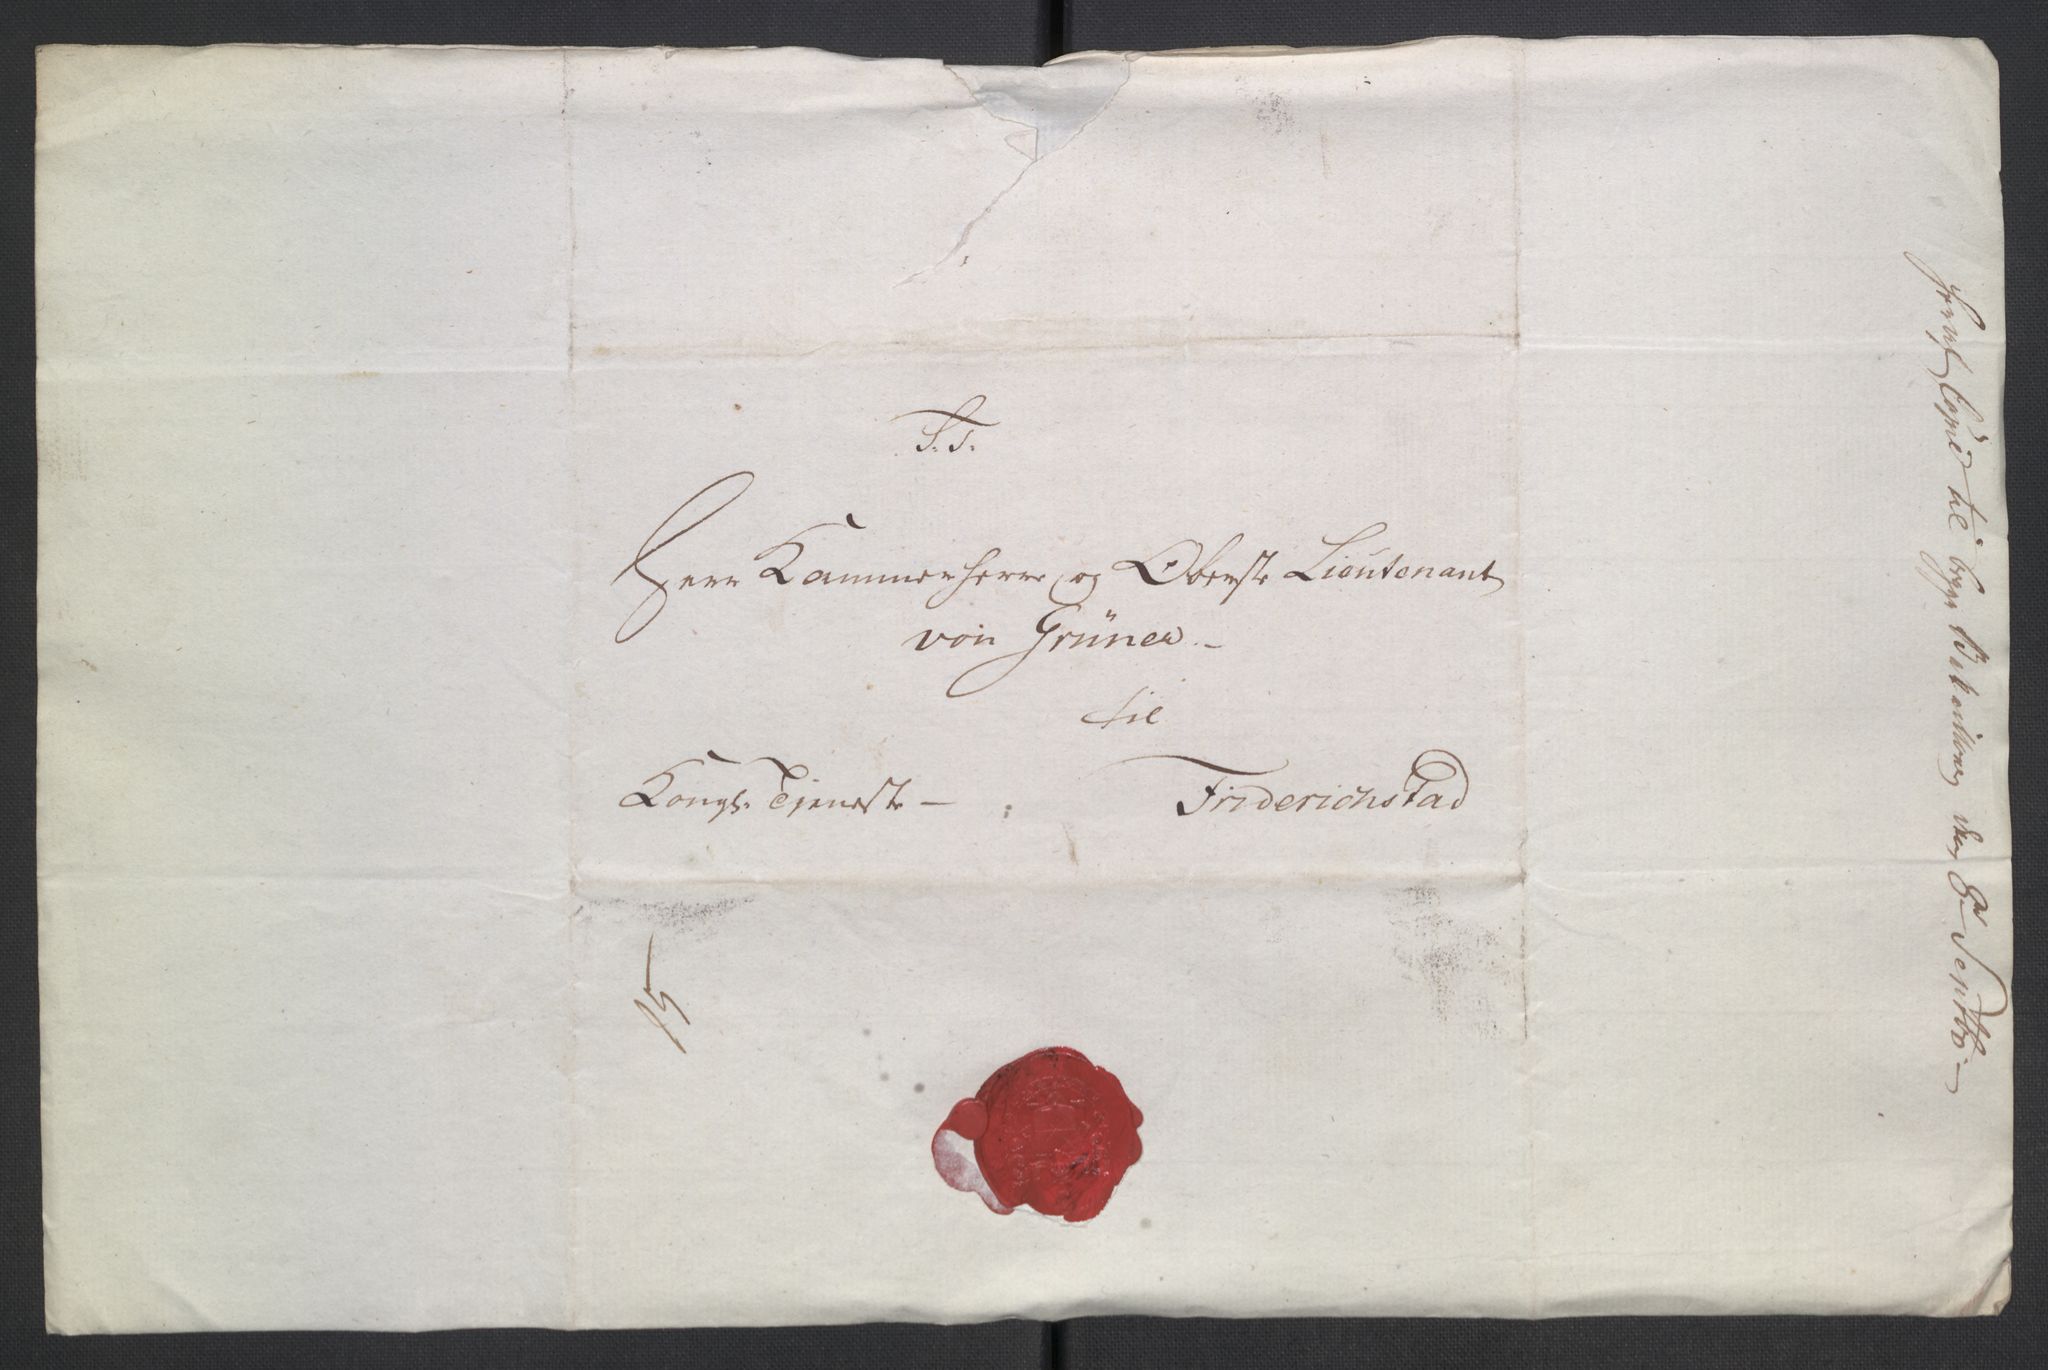 S. T.
Herr Kammerherre og Oberste Lieutenant
von Grüner.
til
Kongl. Tjeneste –
Friderichstad
til den 8 Septbr: